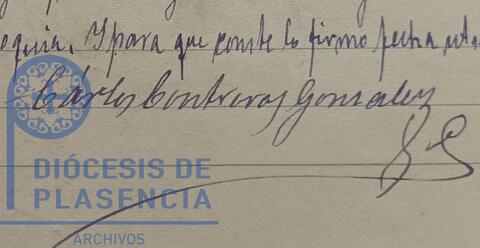 equia. Y para que conste lo firmo fecha ut
Cárlos Contreras Gonzalez
DIÓCESIS DE
PLASENCIA
ARCHIVOS